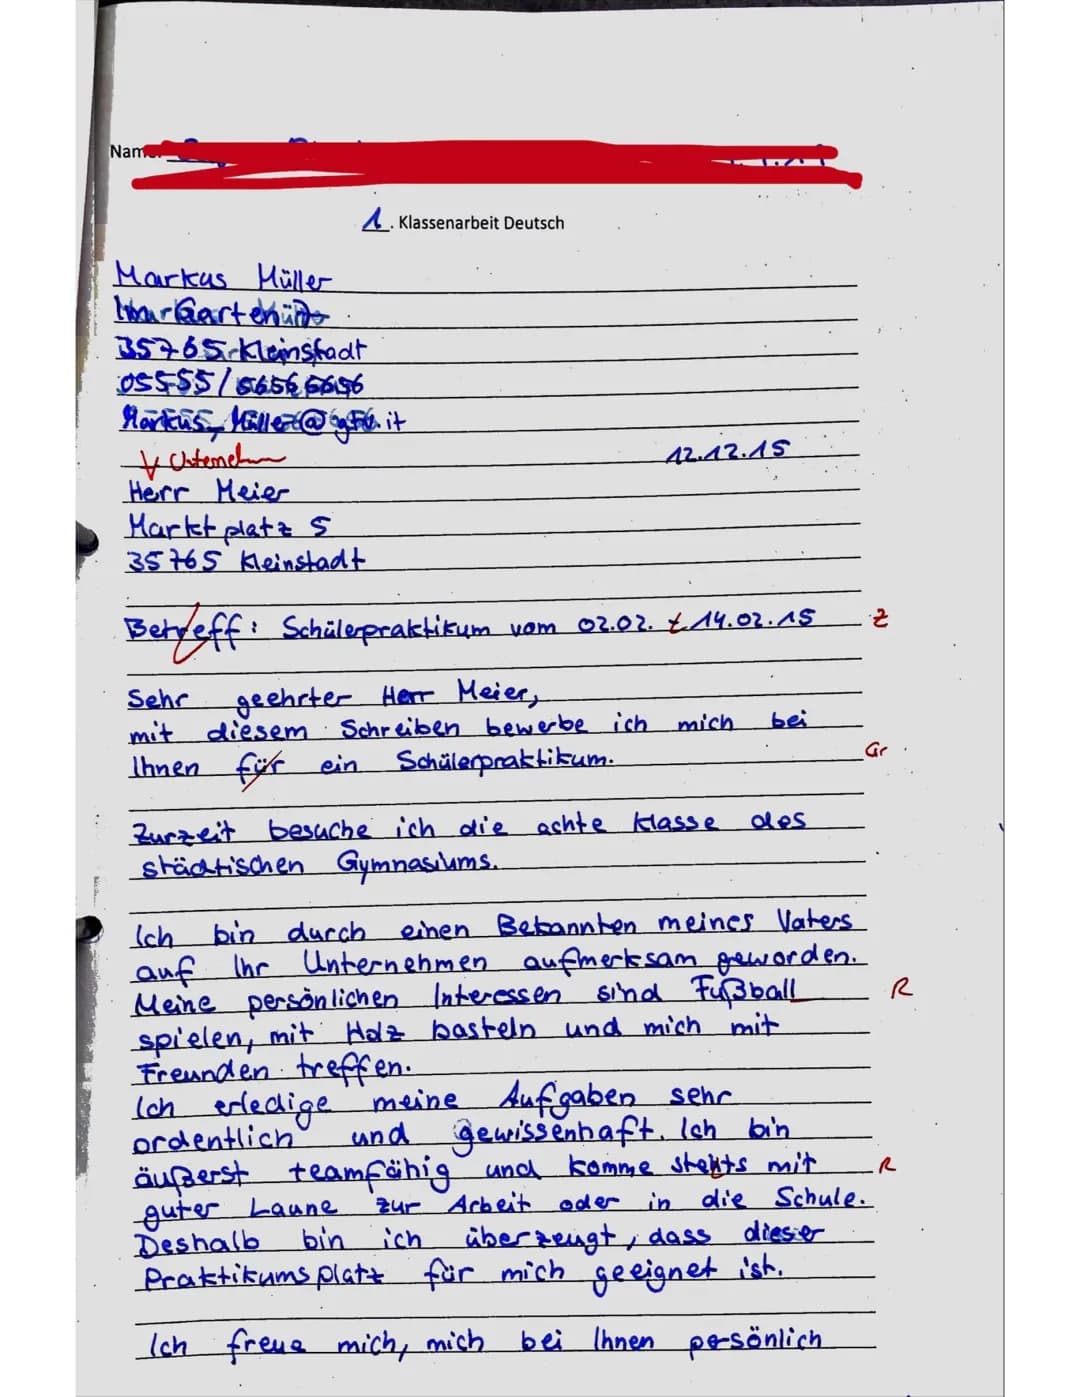 Nam
1. Klassenarbeit Deutsch
Markus Müller
35765 Kleinstadt
05555/56565656
Markus_Müller@gfü.it
V Unternehm
12.12.15
Herr Meier
Marktplatz 5
35765 Kleinstadt
Betreff: Schülerpraktikum vom 02.02. 14.02.15 Z
Sehr geehrter Herr Meier,
mit diesem Schreiben bewerbe ich mich bei
Ihnen für ein Schülerpraktikum. Gr
Zurzeit besuche ich die achte Klasse des
städtischen Gymnasiums.
Ich bin durch einen Bekannten meines Vaters
auf Ihr Unternehmen aufmerksam geworden.
Meine persönlichen Interessen sind Fußball R
spielen, mit Holz basteln und mich mit
Freunden treffen.
Ich erledige meine Aufgaben sehr
ordentlich und gewissenhaft. Ich bin
äußerst teamfähig und komme stehts mit R
guter Laune zur Arbeit oder in die Schule.
Deshalb bin ich überzeugt, dass dieser
Praktikumsplatz für mich geeignet ist.
Ich freue mich, mich bei Ihnen persönlich